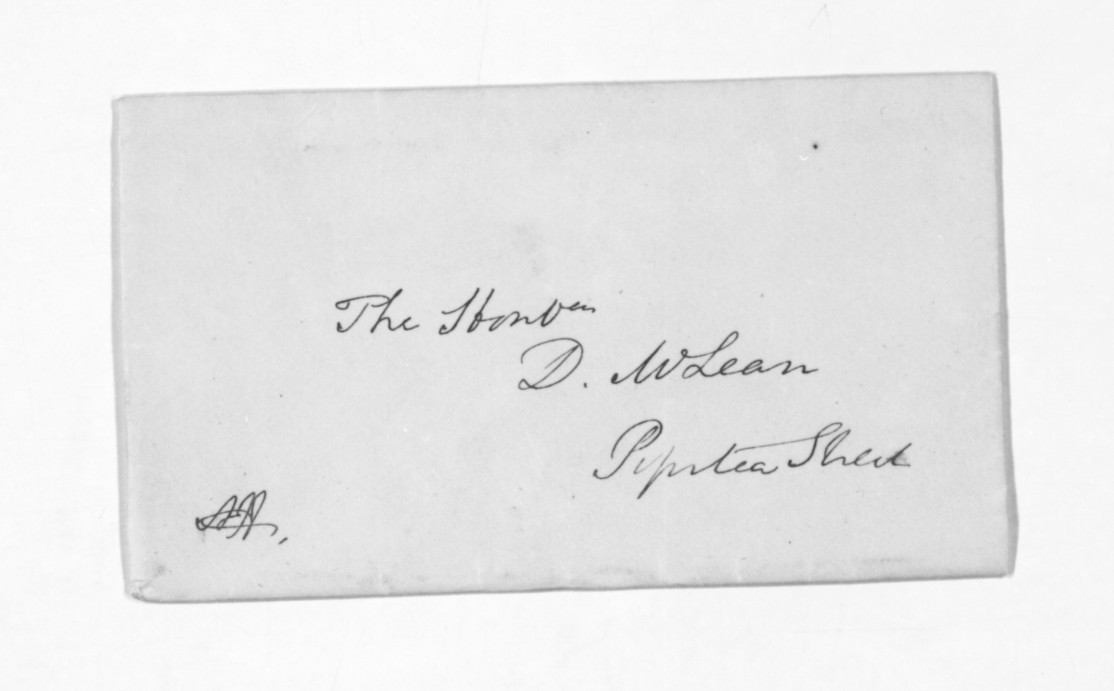 The Honble
D. McLean
Pipitea Street